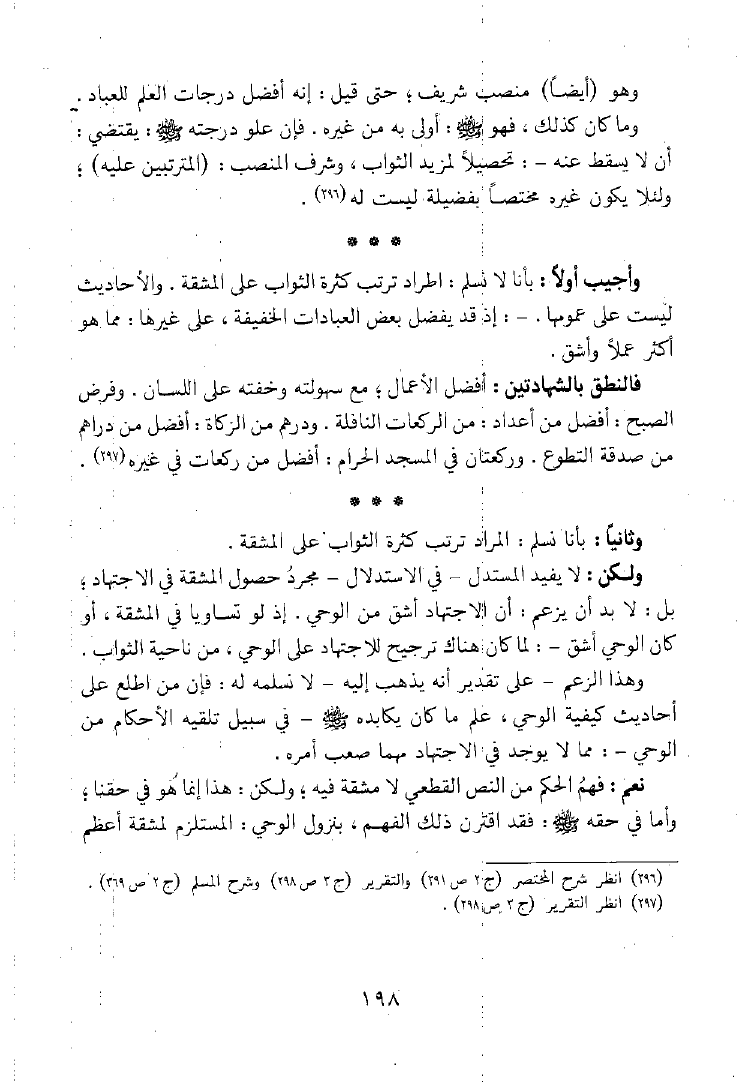 وهو (أيضاً) منصب شريف ؛ حتى قيل : إنه أفضل درجات العلم للعباد .
وما كان كذلك ، فهو ﷺ : أولى به من غيره . فإن علو درجته ﷺ : يقتضي :
أن لا يسقط عنه – : تحصيلاً لمزيد الثواب ، وشرف المنصب : (المترتبين عليه) ؛
ولئلا يكون غيره مختصاً بفضيلة ليست له (٢٩٦) .
* * *
وأجيب أولاً : بأنا لا نسلم : اطراد ترتب كثرة الثواب على المشقة . والأحاديث
ليست على عمومها . – : إذ قد يفضل بعض العبادات الخفيفة ، على غيرها : مما هو
أكثر عملاً وأشق .
فالنطق بالشهادتين : أفضل الأعمال ؛ مع سهولته وخفته على اللسان . وفرض
الصبح : أفضل من أعداد : من الركعات النافلة . ودرهم من الزكاة : أفضل من دراهم
من صدقة التطوع . وركعتان في المسجد الحرام : أفضل من ركعات في غيره (٢٩٧) .
* * *
وثانياً : بأنا نسلم : المراد ترتب كثرة الثواب على المشقة .
ولكن : لا يفيد المستدل – في الاستدلال – مجردُ حصول المشقة في الاجتهاد ؛
بل : لا بد أن يزعم : أن الاجتهاد أشق من الوحي . إذ لو تساويا في المشقة ، أو
كان الوحي أشق – : لما كان هناك ترجيح للاجتهاد على الوحي ، من ناحية الثواب .
وهذا الزعم – على تقدير أنه يذهب إليه – لا نسلمه له : فإن من اطلع على
أحاديث كيفية الوحي ، علم ما كان يكابده ﷺ – في سبيل تلقيه الأحكام من
الوحي – : مما لا يوجد في الاجتهاد مهما صعب أمره .
نعم : فهمُ الحكم من النص القطعي لا مشقة فيه ؛ ولكن : هذا إنما هو في حقنا ؛
وأما في حقه ﷺ : فقد اقترن ذلك الفهم ، بنزول الوحي : المستلزم لمشقة أعظم
(٢٩٦) انظر شرح المختصر (ج ٢ ص ٢٩١) والتقرير (ج ٣ ص ٢٩٨) وشرح المسلم (ج ٢ ص ٣٦٩) .
(٢٩٧) انظر التقرير (ج ٣ ص ٢٩٨) .
١٩٨